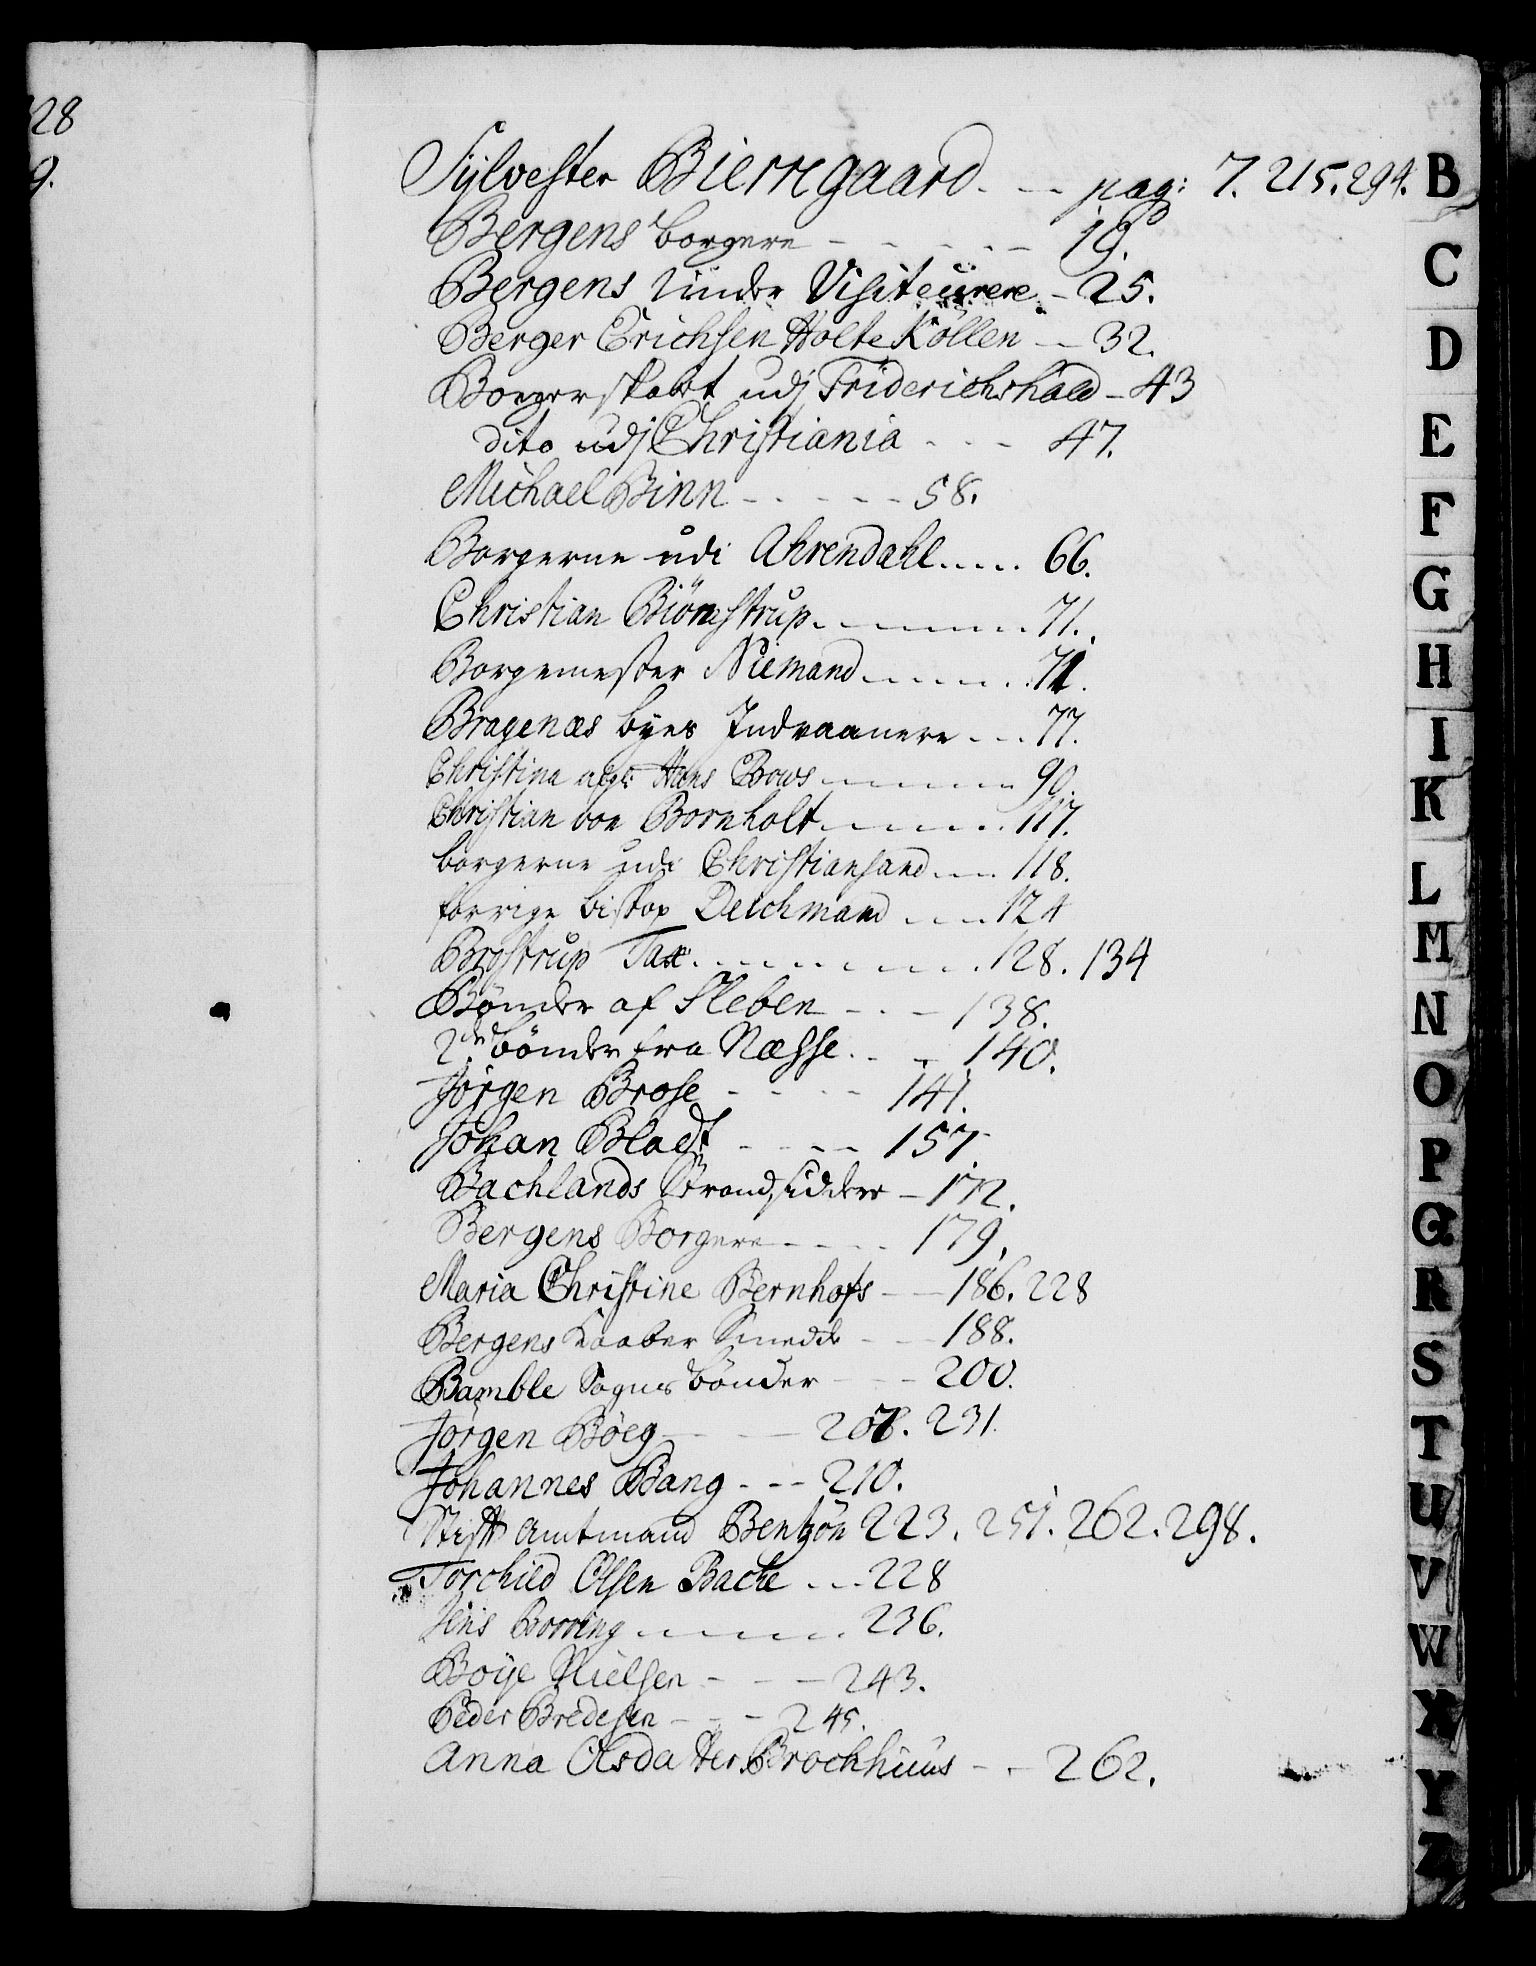 28
9.
Sylvester Bierregaard. — pag: 7. 215. 294.
Bergens borgere - - - - - 19.
Bergens Under Visiteurere - 25.
Berger Erichsen Holte Kollen — 32.
Borgerskabet udj Friderichshald - 43
dito udj Christiania - - - 47.
Michael Binn - - - - - 58.
Borgerne udi Ahrendahl..... 66.
Christian Biörnstrup. - - - - - 71.
Borgemester Niemand - - - - - 71.
Bragenæs byes Indvaanere - - - 77.
Christina Hans Bows - - - - - 90.
Christian von Bornholt - - - - - 117.
borgerne udi Christiansand - - - 118.
forrige biskop Deichmand - - - 124
Brostrup Tax. - - - - - - 128. 134
Bønder af Sleben - - - 138.
2de bönder fra Næsse. - - 140.
Jörgen Brose - - - - 141.
Johan Bladt - - - - 157
Bachlands Strandsiddere - 172.
Bergens Borgere - - - - 179.
Maria Christine Bernhofs - — 186. 228
Bergens Kaaber Smedde - — 188.
Bamble Sogns bönder - - - 200.
Jörgen Böeg - - - 207. 231.
Johannes Bang - - - 210.
Stift Amtmand Bentzön 223. 251. 262. 298.
Torchild Olsen Bache - - - 228
Jens Borring - - - - - 236.
Boye Nielsen - - - - 243.
Peder Bredesen - - - 245.
Anna Olsdatter Brochhuus - - 262.
B
C
D
E
F
G
H
I
K
L
M
N
O
P
Q
R
S
T
U
V
W
X
Y
Z